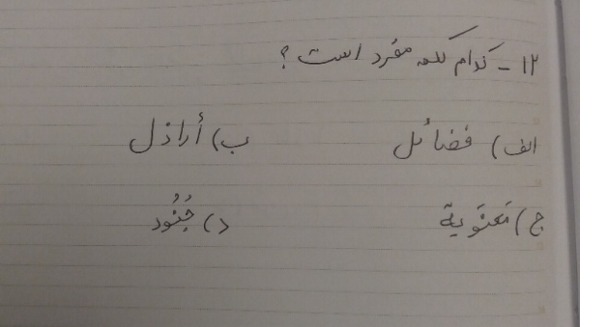 ۱۲ - کدام کلمه مفرد است ؟
الف) فضائل ب) أراذل
ج) مَعنَویة د) جُنُود